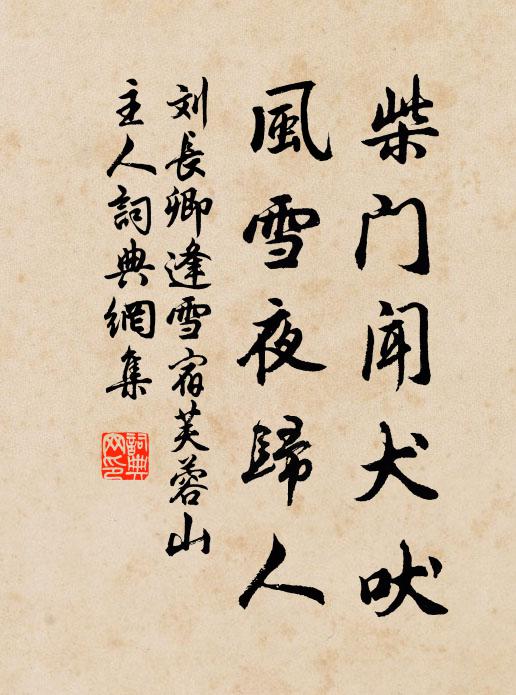 柴门闻犬吠
風雪夜歸人
刘長卿逢雪宿芙蓉山
主人詞典網集
詞典网印